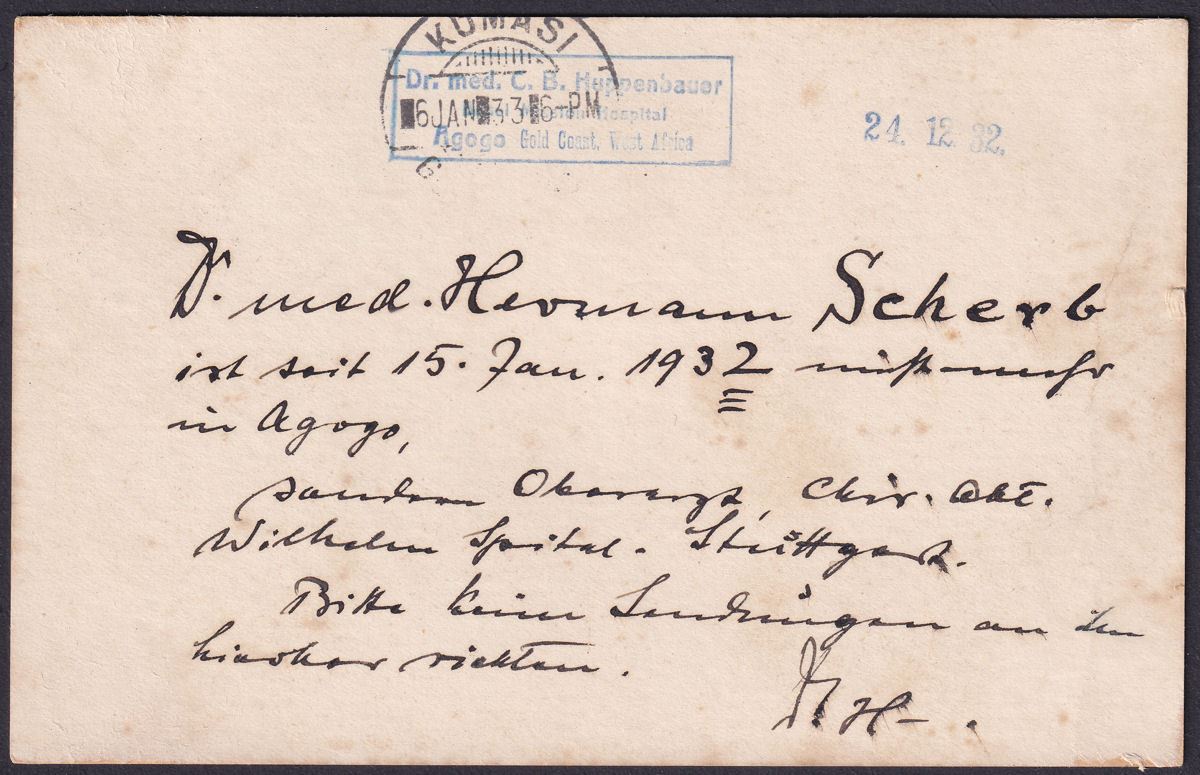 KUMASI
6 JAN 33 6-PM
G
Dr. med. C. B. Huppenbauer
Basel Mission Hospital
Agogo Gold Coast, West Africa
24. 12. 32.
Dr. med. Hermann Scherb
ist seit 15. Jan. 1932 nicht mehr
in Agogo,
sondern Oberarzt, Chir. Abt.
Wilhelm Spital. Stuttgart.
Bitte keine Sendungen an ihn
hierher richten.
Dr. H.